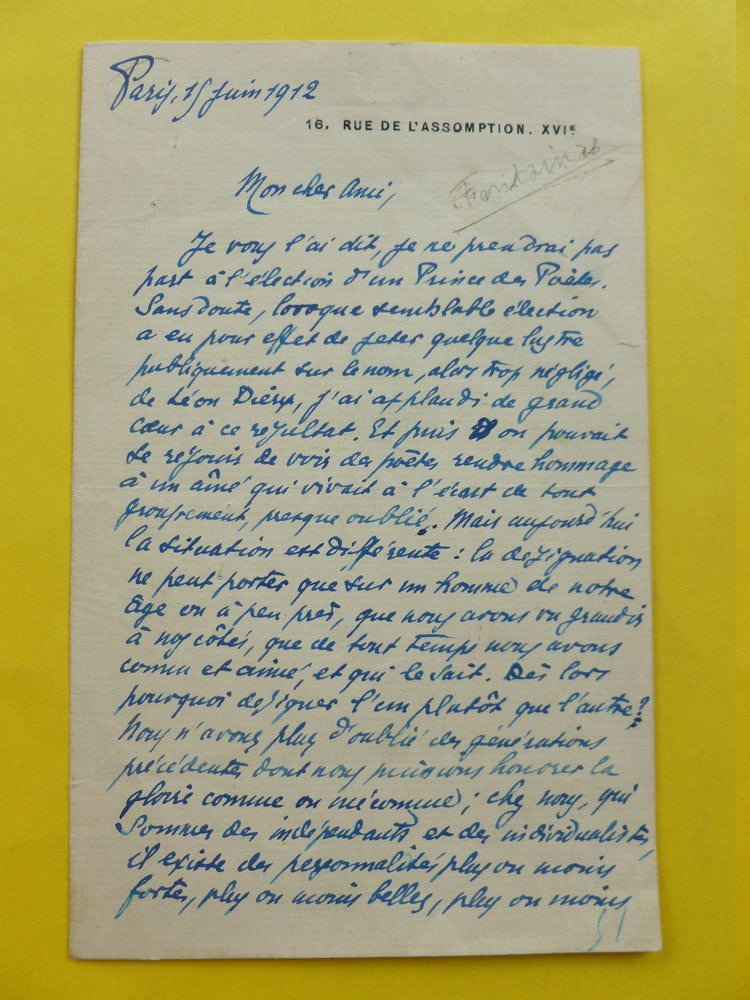 Paris, 15 juin 1912
16, RUE DE L'ASSOMPTION. XVIE
Fontainas
Mon cher Ami,
Je vous l'ai dit, je ne prendrai pas
part à l'élection d'un Prince des Poètes.
Sans doute, lorsque semblable élection
a eu pour effet de jeter quelque lustre
publiquement sur le nom, alors trop négligé,
de Léon Dierx, j'ai applaudi de grand
cœur à ce résultat. Et puis on pouvait
se réjouir de voir des poètes rendre hommage
à un aîné qui vivait à l'écart de tout
groupement, presque oublié. Mais aujourd'hui
la situation est différente : la désignation
ne peut porter que sur un homme de notre
âge ou à peu près, que nous avons vu grandir
à nos côtés, que de tout temps nous avons
connu et aimé, et qui le sait. Dès lors
pourquoi désigner l'un plutôt que l'autre?
Nous n'avons plus d'oublié des générations
précédentes dont nous puissions honorer la
gloire comme on méconnue ; chez nous, qui
sommes des indépendants et des individualistes,
il existe des personnalités plus ou moins
fortes, plus ou moins belles, plus ou moins